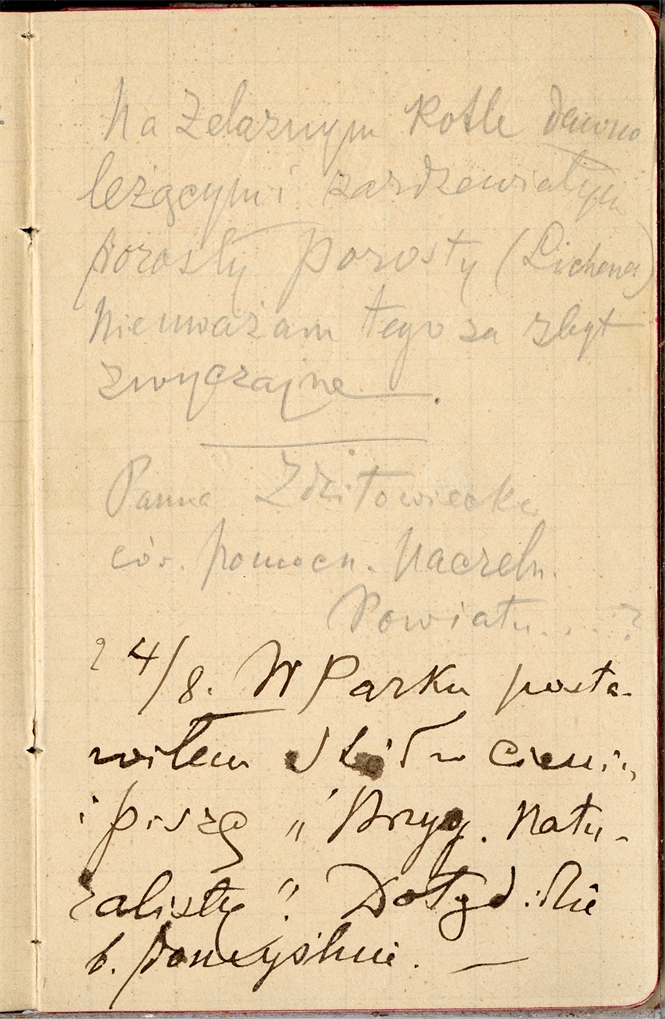 Na żelaznym kotle dawno
leżącym i zardzewiałym
porosły porosty (Lichenes)
Nie uważam tego za zbyt
zwyczajne.
Panna Zdzitowiecka
cór. pomocn. Naczeln.
Powiatu....?
24/8. W Parku posta-
wiłem stół w cieniu
i piszę „Przyg. Natu-
ralisty". Dotąd idzie
b. pomyślnie. —